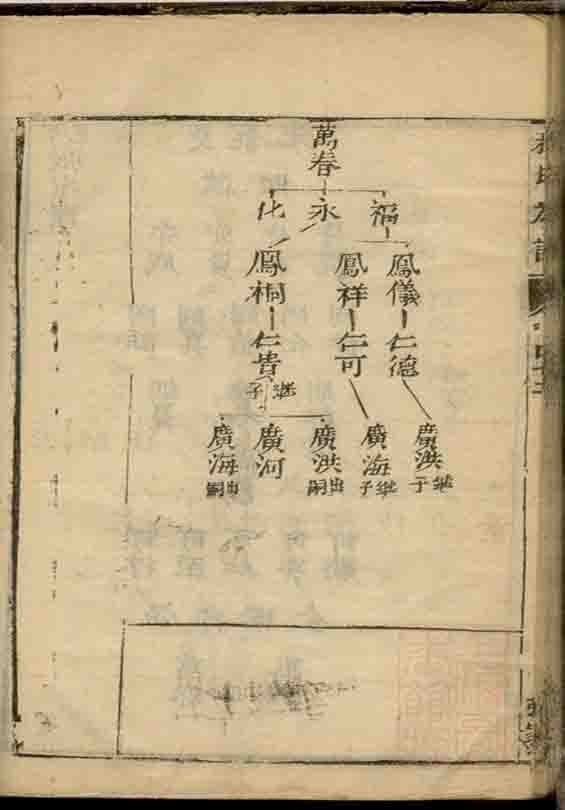 萬春
福 永 化
鳳儀 鳳祥 鳳桐
仁德 仁可 仁貴
繼子
廣洪 廣海 廣洪 廣河 廣海
繼子 繼子 出嗣 出嗣